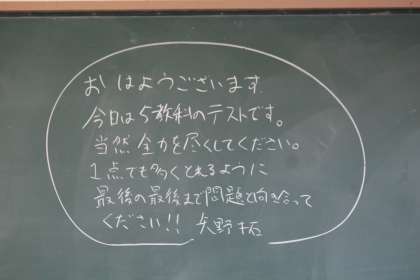 おはようございます.
今日は5教科のテストです。
当然全力を尽くしてください。
1点でも多くとれるように
最後の最後まで問題と向き合って
ください!! 矢野拓